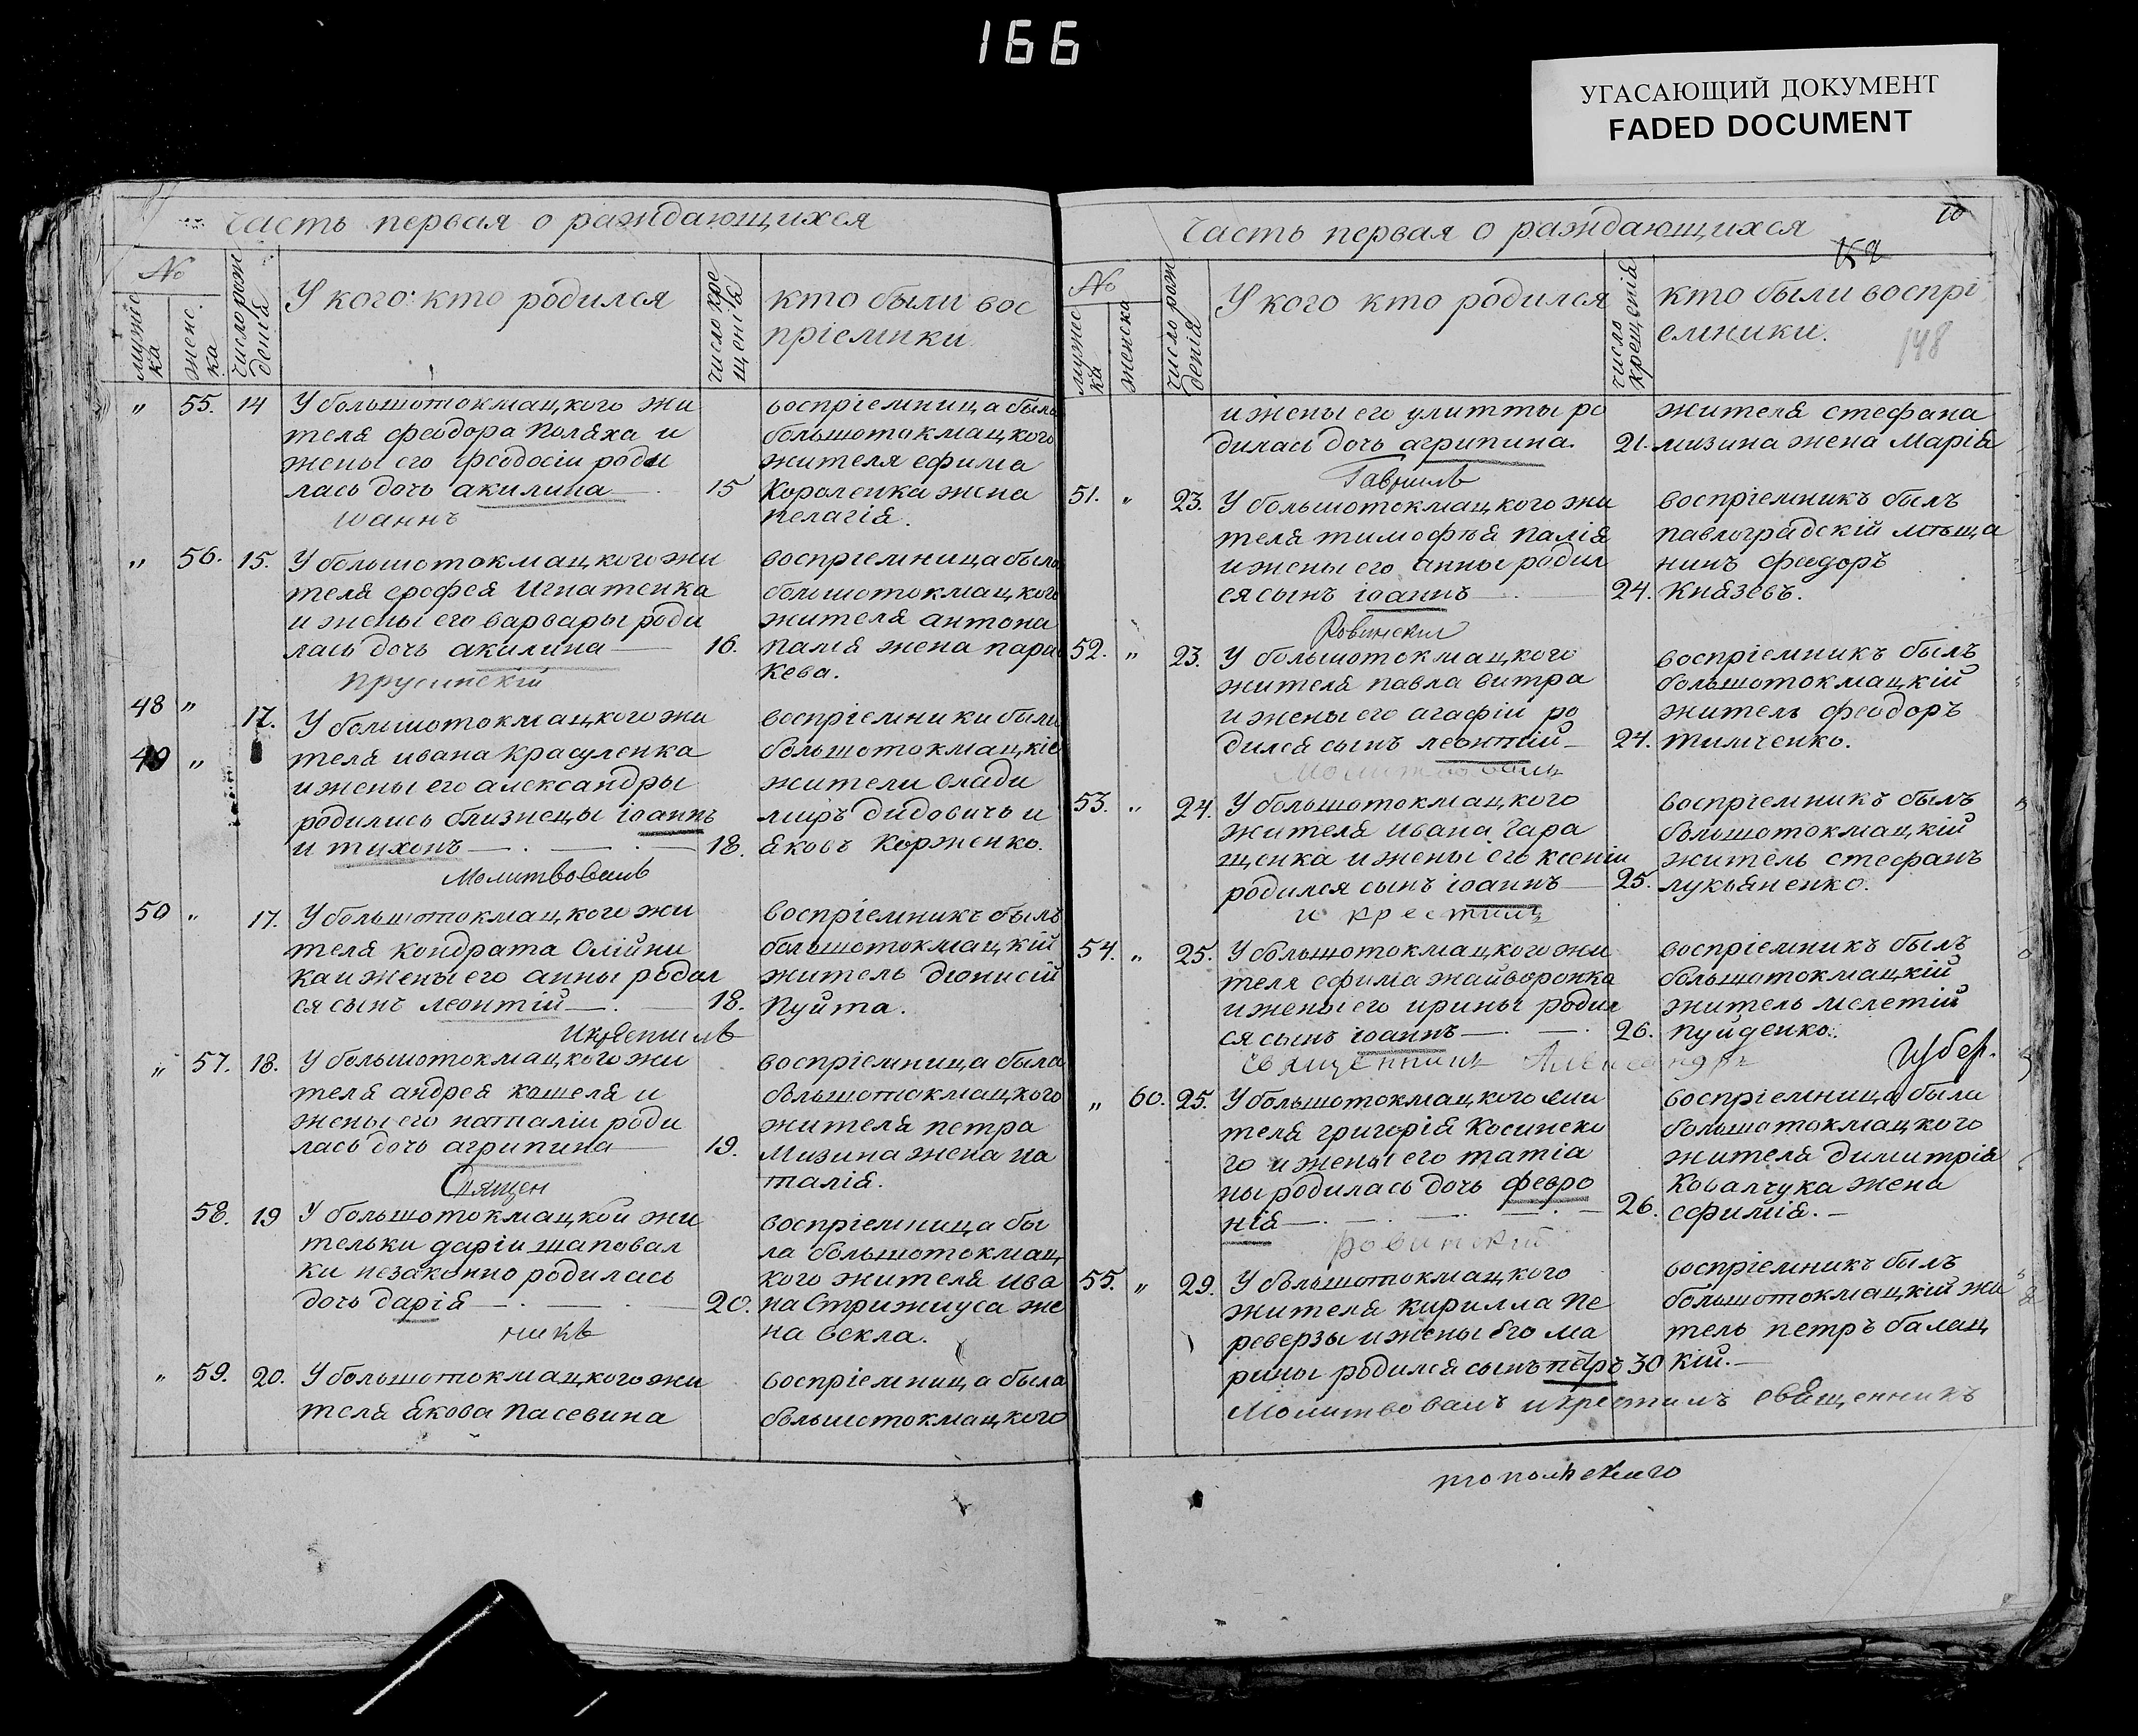 166
УГАСАЮЩИЙ ДОКУМЕНТ
FADED DOCUMENT
Часть первая о раждающихся
№
мужес
ка
женс.
ка.
число рож
денія
У кого: кто родился
число кре
щенія
кто были вос
пріемники
„ 55. 14 У большотокмацкого жи
теля феодора Поляха и
жены его феодосіи роди
лась дочь акилина 15
воспріемница была
большотокмацкого
жителя ефима
Короленка жена
пелагія.
Іоаннъ
„ 56. 15. У большотокмацкого жи
теля ерофея Игнатенка
и жены его варвары роди
лась дочь акилина 16.
воспріемница была
большотокмацкого
жителя антона
палія жена парас
кева.
прусинскій
48 „ 17. У большотокмацкого жи
49 „ теля ивана Красуленка
и жены его александры
родились близнецы іоаннъ
и тихонъ 18.
воспріемники были
большотокмацкіе
жители влади
миръ дидовичъ и
яковъ Корженко.
Молитвовалъ
50 „ 17. У большотокмацкого жи
теля кондрата Олійни
ка и жены его анны родил
ся сынъ леонтій 18.
воспріемникъ былъ
большотокмацкій
житель діонисій
Пуйта.
и крестилъ
„ 57. 18. У большотокмацкого жи
теля андрея кошеля и
жены его наталіи роди
лась дочь агрипина 19.
воспріемница была
большотокмацкого
жителя петра
Мизина жена на
талія.
Священ
58. 19 У большотокмацкой жи
тельки даріи шаповал
ки незаконно родилась
дочь дарія 20.
воспріемница бы
ла большотокмац
кого жителя ива
на Стрижиуса же
на векла.
никъ
„ 59. 20. У большотокмацкого жи
теля Якова Пасевина
воспріемница была
большотокмацкого
Часть первая о раждающихся
10
148
№
мужес
ка
женска
число рож
денія
У кого кто родился
число
крещенія
кто были воспрі
емники.
и жены его улитты ро
дилась дочь агрипина. 21.
жителя стефана
мизина жена Марія
Гавриилъ
51. „ 23. У большотокмацкого жи
теля тимофѣя палія
и жены его анны родил
ся сынъ іоаннъ 24.
воспріемникъ былъ
павлоградскій мѣща
нинъ феодоръ
Князевъ.
Ровинскій
52. „ 23. У большотокмацкого
жителя павла витра
и жены его агафіи ро
дился сынъ леонтій 24.
воспріемникъ былъ
большотокмацкій
житель феодоръ
тимченко.
Молитвовалъ
53. „ 24. У большотокмацкого
жителя ивана Гара
щенка и жены его ксеніи
родился сынъ іоаннъ 25.
воспріемникъ былъ
большотокмацкій
житель стефанъ
лукьяненко.
и крестилъ
54. „ 25. У большотокмацкого жи
теля ефима жайворонка
и жены его ирины родил
ся сынъ іоаннъ 26.
воспріемникъ былъ
большотокмацкій
житель мелетій
пуйденко.
священникъ Александръ
„ 60. 25. У большотокмацкого жи
теля григорія Косинско
го и жены его татіа
ны родилась дочь февро
нія 26.
воспріемница была
большотокмацкого
жителя димитрія
Ковалчука жена
ефимія.
ровинскій
55. „ 29. У большотокмацкого
жителя кирилла Пе
реверзы и жены его ма
рины родился сынъ петръ 30
воспріемникъ былъ
большотокмацкій жи
тель петръ балац
кій.
Молитвовалъ и крестилъ священникъ